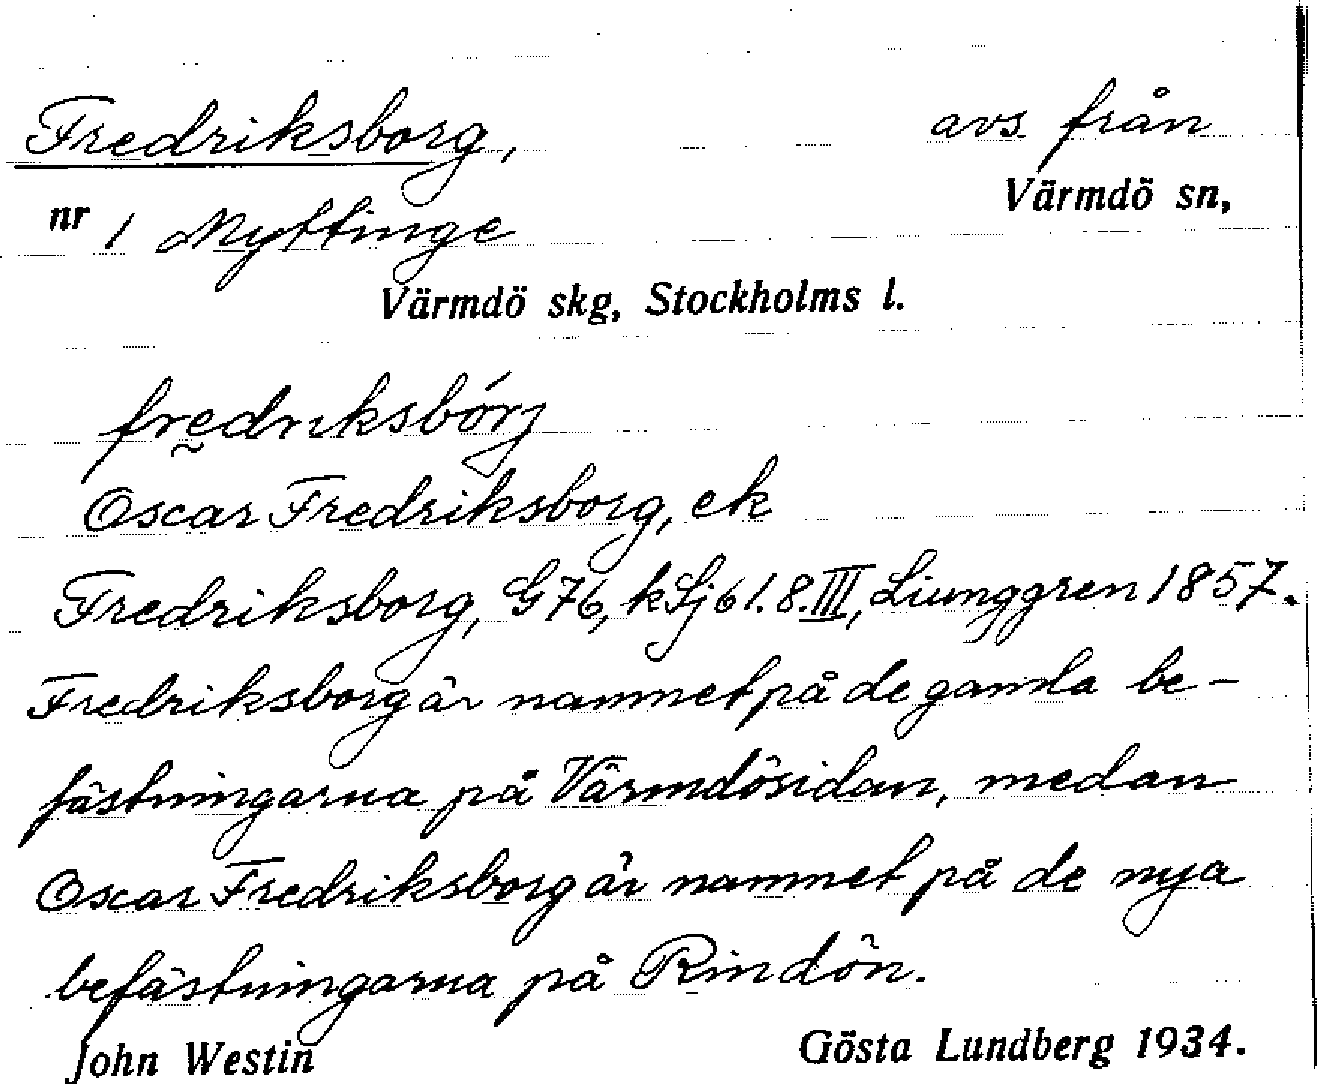 Fredriksborg, avs från
Värmdö sn,
nr 1 Myttinge
Värmdö skg, Stockholms l.
fredriksbórj
Oscar Fredriksborg, ek
Fredriksborg, G76, kSj61.8.III, Liunggren 1857.
Fredriksborg är namnet på de gamla be-
fästningarna på Värmdösidan, medan
Oscar Fredriksborg är namnet på de nya
befästningarna på Rindön.
John Westin Gösta Lundberg 1934.